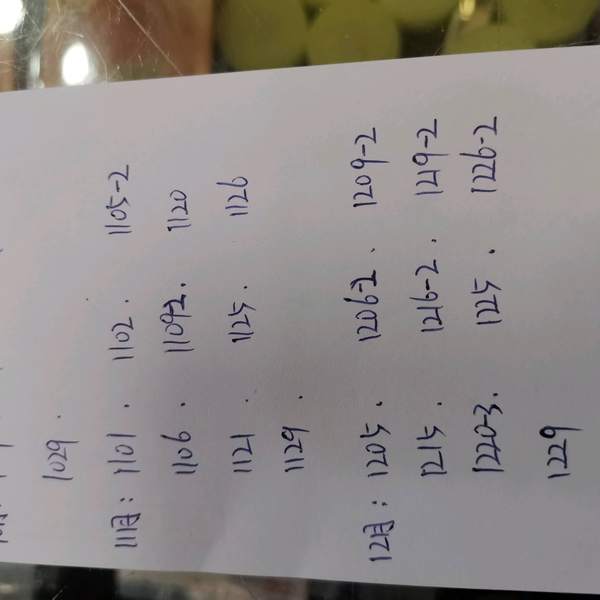 1029.
11月: 1101. 1102. 1105-2
1106. 1109-2. 1120
1121. 1125. 1126
1129.
12月: 1205. 1206-2、1209-2
1215. 1216-2. 1219-2
1220-3. 1225. 1226-2
1229